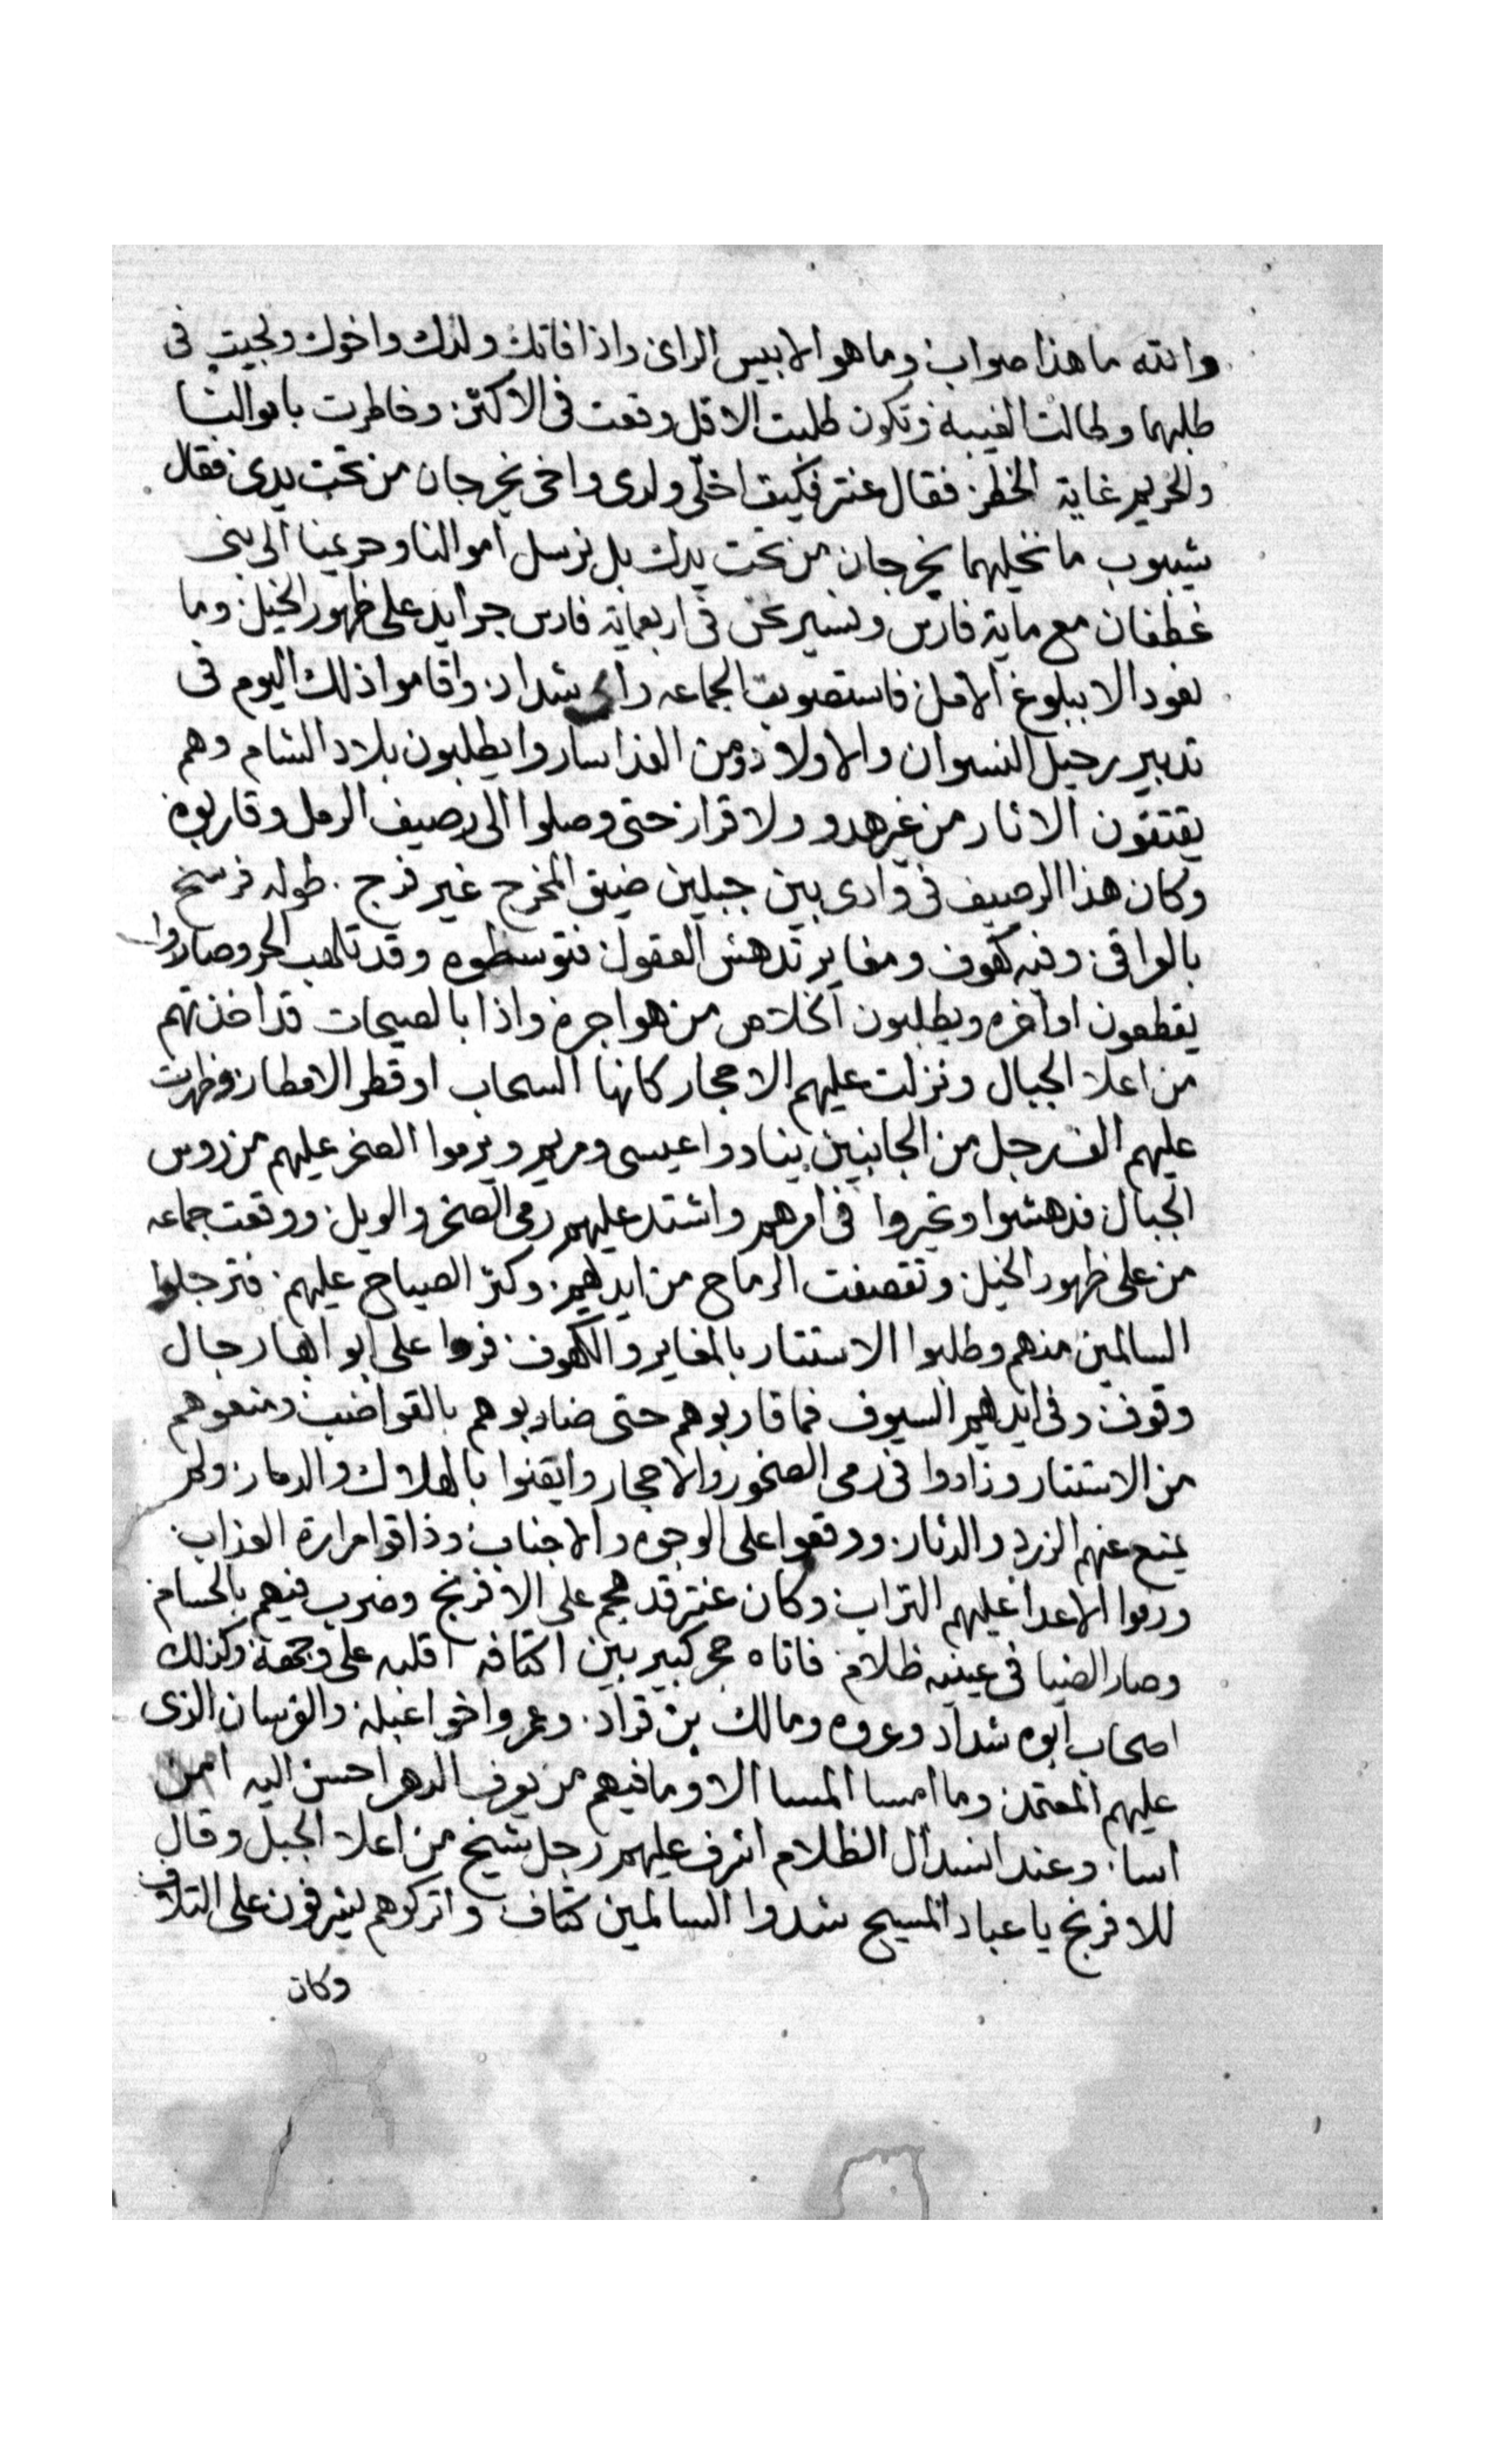 والله ما هذا صواب وما هو الا بيس الراى واذا فاتك ولدك واخوك ولجيت فى
طلبهما وطالت الغيبه وتكون طلبت الاقل وقعت فى الاكثر وخاطرت باموالنا
والحريم غاية الخطر فقال عنتر فكيف اخلى ولدى واخى يخرجان من تحت يدى فقال
شيبوب ما نخليهما يخرجان من تحت يدك بل نرسل اموالنا وحريمنا الى بنى
غطفان مع ماية فارس ونسير نحن فى اربعماية فارس جرايد على ظهور الخيل وما
نعود الا ببلوغ الامل فاستصوبت الجماعه راى شداد واقاموا ذلك اليوم فى
تدبير رحيل النسوان والاولاد ومن الغذا ساروا يطلبون بلاد الشام وهم
يقتفون الاثار من غير هدو ولا قرار حتى وصلوا الى رصيف الرمل وقاربوه
وكان هذا الرصيف فى وادى بين جبلين ضيق المخرج غير فرج طوله فرسخ
بالوافى وفيه كهوف ومغاير تدهش العقول فتوسطوه وقد تلهب الحر وصاروا
يقطعون اواخره ويطلبون الخلاص من هواجره واذا بالصيحات قد اخذتهم
من اعلا الجبال ونزلت عليهم الاحجار كانها السحاب او قطر الامطار وظهرت
عليهم الف رجل من الجانبين ينادوا عيسى ومريم ويرموا الصخر عليهم من روس
الجبال فدهشوا وتحيروا فى امرهم واشتد عليهم رمى الصخر والويل ووقعت جماعه
من على ظهور الخيل وتقصفت الرماح من ايديهم وكثر الصياح عليهم فترجلوا
السالمين منهم وطلبوا الاستتار بالمغاير والكهوف فروا على ابوابها رجال
وقوف وفى ايديهم السيوف فما قاربوهم حتى ضاربوهم بالقواضب ومنعوهم
من الاستتار وزادوا فى رمى الصخور والاحجار وايقنوا بالهلاك والدمار ولم
يمنع عنهم الزرد والدثار ووقعوا على الوجوه والاجناب وذاقوا مرارة العذاب
ورموا الاعدا عليهم التراب وكان عنتر قد هجم على الافرنج وضرب فيهم بالحسام
وصار الضيا فى عينيه ظلام فاتاه حجر كبير بين اكتافه اقلبه على وجهه وكذلك
اصحاب ابوه شداد وعروه ومالك بن قراد وعمروا اخوا عبله والفرسان الذى
عليهم المعتمد وما امسا المسا الا وما فيهم من يعرف الدهر احسن اليه ام
اسا وعند انسدال الظلام اشرف عليهم رجل شيخ من اعلا الجبل وقال
للافرنج يا عباد المسيح شدوا السالمين كتاف واتركوهم يشرفون على التلاف
وكان